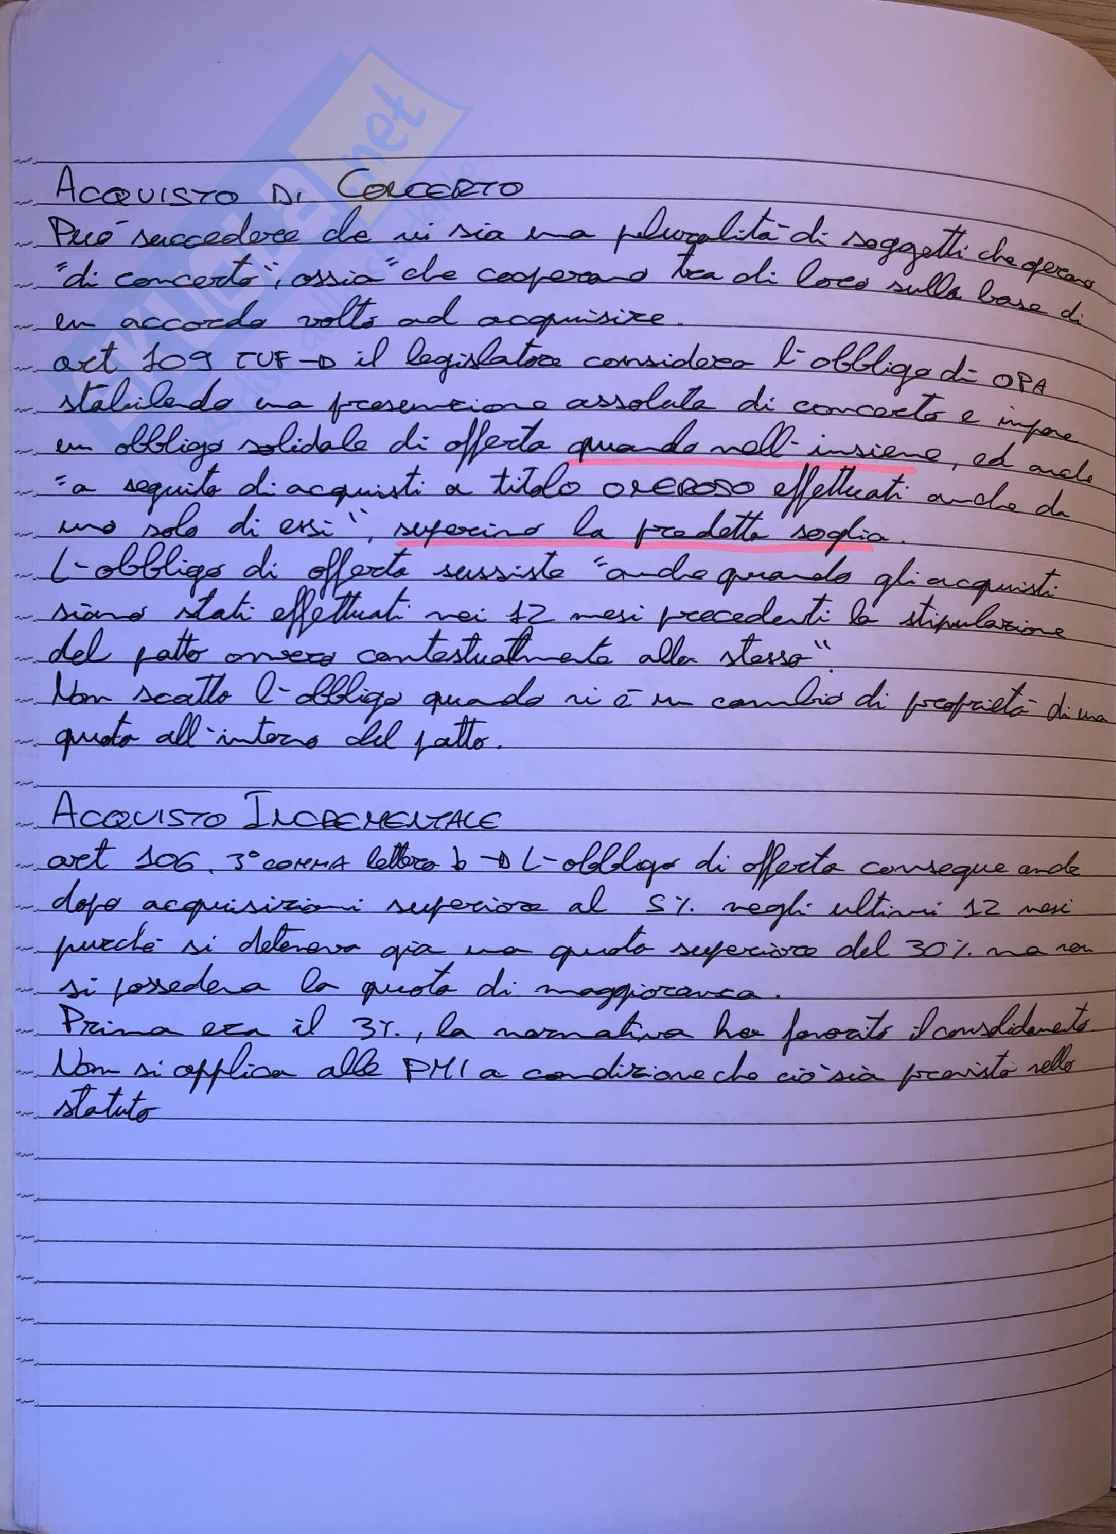 ACQUISTO DI CONCERTO
Può succedere che vi sia una pluralità di soggetti che operano
"di concerto", ossia "che cooperano tra di loro sulla base di
un accordo volto ad acquisire.
art 109 TUF → il legislatore considera l'obbligo di OPA
stabilendo una presunzione assoluta di concerto e impone
un obbligo solidale di offerta quando nell'insieme, ed anche
"a seguito di acquisti a titolo ONEROSO effettuati anche da
uno solo di essi", superino la predetta soglia.
L'obbligo di offerta sussiste "anche quando gli acquisti
siano stati effettuati nei 12 mesi precedenti la stipulazione
del patto ovvero contestualmente allo stesso".
Non scatta l'obbligo quando vi è un cambio di proprietà di una
quota all'interno del patto.
ACQUISTO INCREMENTALE
art 106. 3° COMMA lettera b → L'obbligo di offerta consegue anche
dopo acquisizioni superiore al 5% negli ultimi 12 mesi
purché si deteneva già una quota superiore del 30% ma non
si possedeva la quota di maggioranza.
Prima era il 3%, la normativa ha favorito il consolidamento
Non si applica alle PMI a condizione che ciò sia previsto nello
statuto
SKUOLA.net